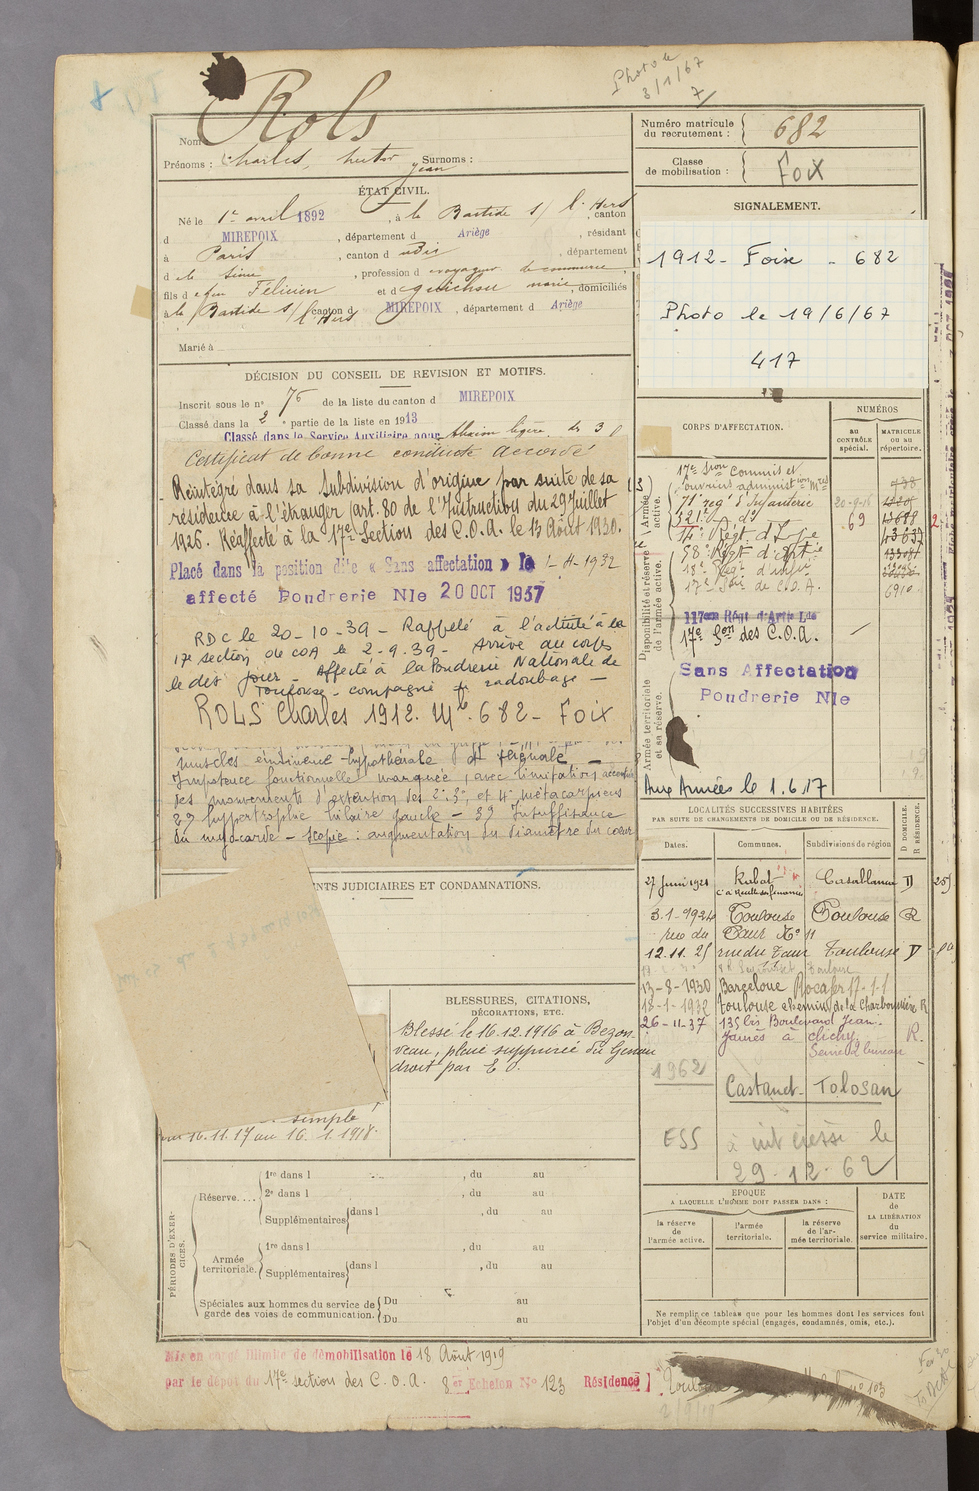 Photo le
3/1/67
7
Rols
Nom
Prénoms : Charles, hector Jean Surnoms :
ÉTAT CIVIL.
Né le 1er avril 1892, à la Bastide s/ l'Hers, canton
d MIREPOIX, département d Ariège, résidant
à Paris, canton d udis, département
d e la Seine, profession d e voyageur de commerce,
fils d e feu Félicien et d e guichou marie, domiciliés
à la Bastide s/ l'Hers canton d MIREPOIX, département d Ariège
Marié à
DÉCISION DU CONSEIL DE REVISION ET MOTIFS.
Inscrit sous le n° 76 de la liste du canton d MIREPOIX
Classé dans la 2e partie de la liste en 1913
Classé dans le Service Auxiliaire pour
Certificat de bonne conduite accordé
Réintégré dans sa subdivision d'origine par suite de sa
résidence à l'étranger (art. 80 de l'Instruction du 29 Juillet
1926. Réaffecté à la 17e Section des C.O.A. le 13 Août 1930.
Placé dans la position dite « Sans affectation » le 1-4-1932
affecté Poudrerie Nle 20 OCT 1937
RDC le 20-10-39 - Rappelé à l'activité à la
17e section de COA le 2-9-39 - Arrivé au corps
le dès jour - Affecté à la Poudrerie Nationale de
Toulouse - compagnie de radoubage -
ROLS Charles 1912. Mle. 682 - Foix
muscles éminence hypothénale et thénale -
Impotence fonctionnelle marquée, avec limitation accentuée
des mouvements d'extension des 2e 3e, et 4e métacarpiens
2°) hypertrophie hilaire gauche - 3°) Insuffisance
du myocarde - Scopie : augmentation du diamètre du cœur
NTS JUDICIAIRES ET CONDAMNATIONS.
BLESSURES, CITATIONS,
DÉCORATIONS, ETC.
Blessé le 16.12.1916 à Bezon-
veau, plaie suppurée du Genou
droit par E O.
simple
16.11.17 au 16.1.1918.
PÉRIODES D'EXER-
CICES.
Réserve....
1re dans l , du au
2e dans l , du au
Supplémentaires dans l , du au
Armée
territoriale.
1re dans l , du au
Supplémentaires dans l , du au
Spéciales aux hommes du service de
garde des voies de communication.
Du au
Du au
Mis en congé illimité de démobilisation le 18 Août 1919
par le dépôt du 17e section des C.O.A. 8er Echelon N° 123 Résidence
Numéro matricule
du recrutement : 682
Classe
de mobilisation : Foix
SIGNALEMENT.
1912 - Foix - 682
Photo le 19/6/67
417
CORPS D'AFFECTATION.
NUMÉROS
AU
CONTRÔLE
spécial.
MATRICULE
OU AU
répertoire.
Armée
active.
Disponibilité et réserve
de l'armée active.
Armée territoriale
et sa réserve.
17e Son Commis et
ouvriers administon Mres
71e rég d'Infanterie 20-9-16
121e d° 69
14e Régt d'Infie
58e Régt d'artie
18e Régt d'infie
17e Son de C.O.A. 6910
117eme Régt d'Artie Lde
17e Son des C.O.A.
Sans Affectation
Poudrerie Nle
Aux Armées le 1.6.17
LOCALITÉS SUCCESSIVES HABITÉES
PAR SUITE DE CHANGEMENTS DE DOMICILE OU DE RÉSIDENCE.
Dates. Communes. Subdivisions de région
D DOMICILE.
R RÉSIDENCE.
27 Juin 1921 Rabat Casablanca D
3.1-1924 Toulouse Toulouse R
rue du Taur N° 11
12.11.25 rue du Taur Toulouse D
13-8-1930 Barcelone Rocafort 17-1-1
18-1-1932 Toulouse chemin de la Charbonnière R
26-11-37 135 bis Boulevard Jean-
Jaurès à Clichy R.
Seine 2e bureau
1962
Castanet-Tolosan
ESS à intéressé le
29-12-62
EPOQUE
A LAQUELLE L'HOMME DOIT PASSER DANS :
la réserve
de
l'armée active.
l'armée
territoriale.
la réserve
de l'ar-
mée territoriale.
DATE
de
LA LIBÉRATION
du
service militaire.
Ne remplir ce tableau que pour les hommes dont les services font
l'objet d'un décompte spécial (engagés, condamnés, omis, etc.).